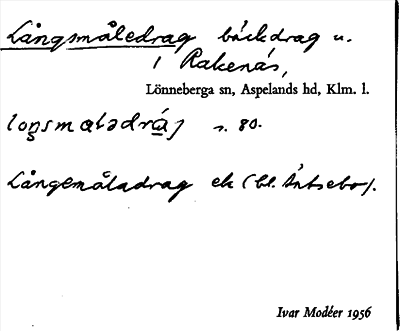 Långsmåledrag bäckdrag u.
i Rakenäs,
Lönneberga sn, Aspelands hd, Klm. l.
s. 80.
Långemåladrag ek (bl. Äntsebo).
Ivar Modéer 1956